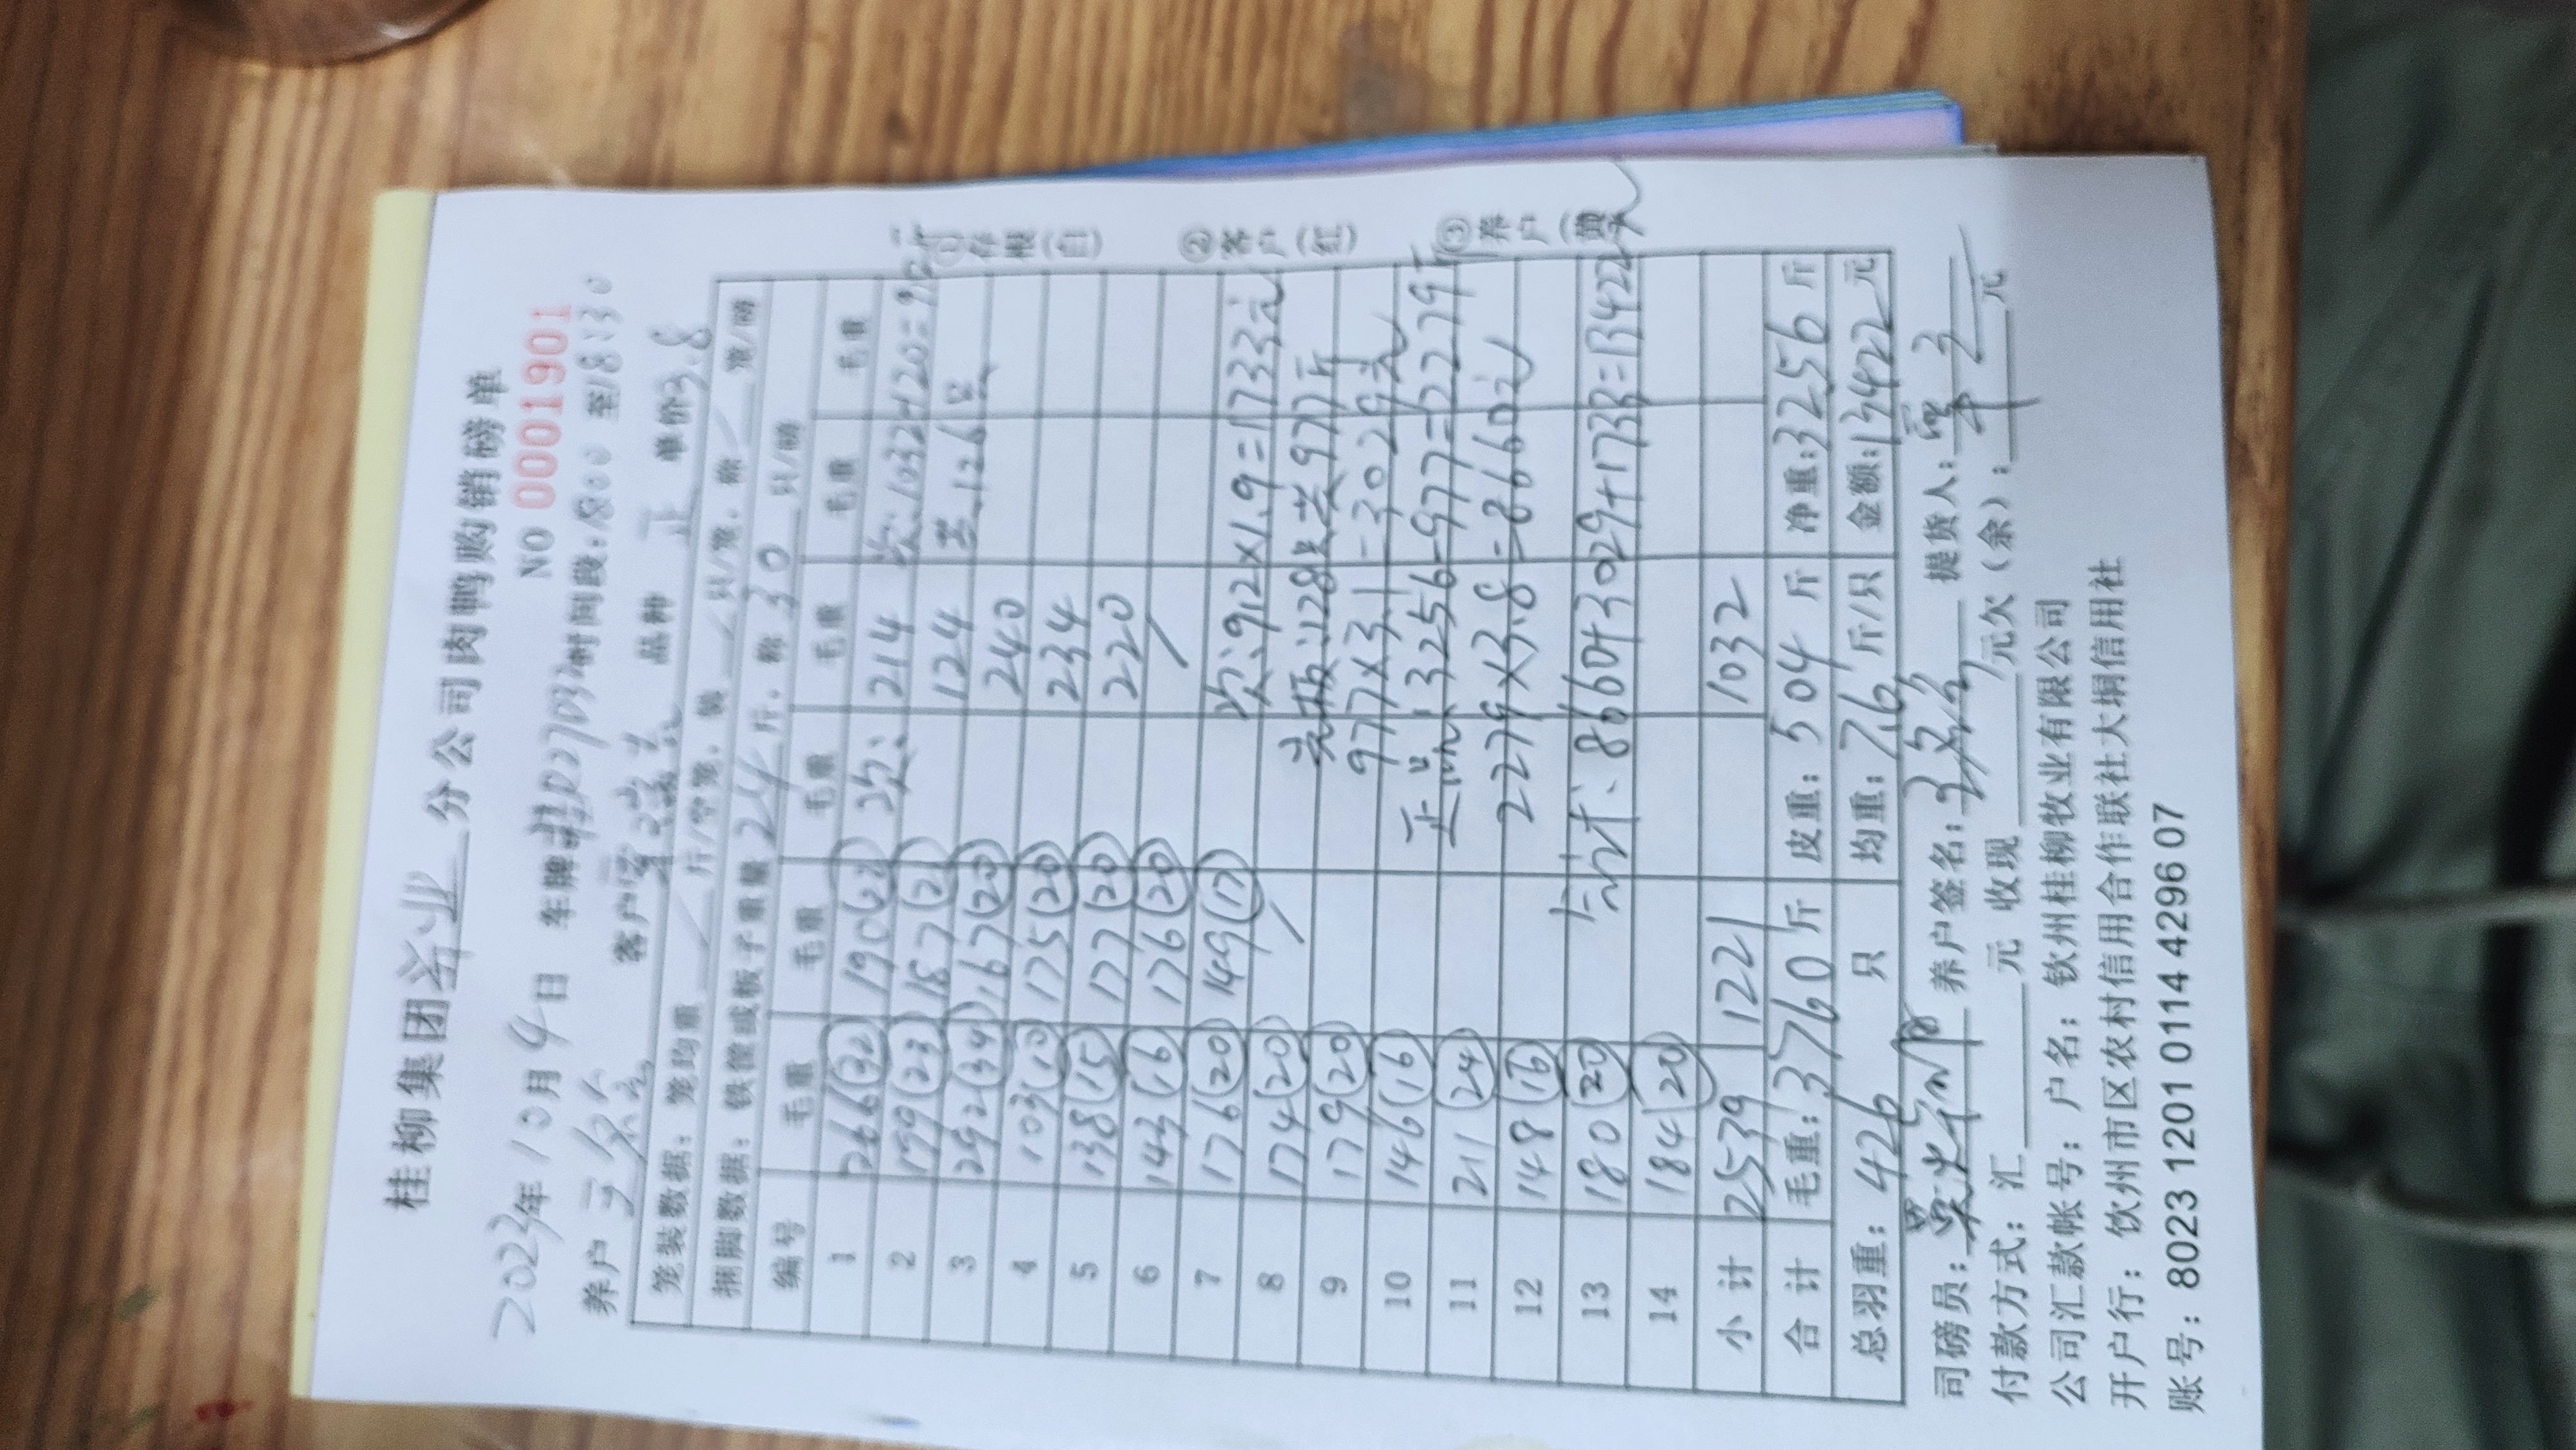 桂柳集团兴业分公司肉鸭购销磅单
NO 0001901
2023年10月4日 车牌 时间段:1800至18:30
养户 客户 品种 正 单价3.8
笼装数据:笼均重 斤/空笼,装 只/笼,称 笼/磅
捆脚数据:铁筐或板子重量24斤,称30只/磅
编号 毛重 毛重 毛重 毛重 毛重 毛重
1 266(32) 190(22) 次: 214 次:1032-120=912斤
2 199(23) 187(21) 124 共:126只
3 292(34) 167(20) 240
4 103(10) 175(20) 234
5 138(15) 177(20) 220
6 143(16) 176(20)
7 176(20) 149(17) 次:912×1.9=1733元
8 174(20) 毛板:128只共977斤
9 179(20) 977×3.1=3029元
10 146(16) 正品:3256-977=2279斤
11 211(24) 2279×3.8=8660元
12 148(16)
13 180(20) 合计:8660+3029+1733=13422元
14 184(20)
小计 2539 1221 1032
合计 毛重:3760斤 皮重:504斤 净重:3256斤
总羽重:426只 均重:7.6斤/只 金额:13422元
司磅员: 养户签名: 提货人:
付款方式:汇 元 收现 元欠(余): 元
公司汇款帐号:户名:钦州桂柳牧业有限公司
开户行:钦州市区农村信用合作联社大垌信用社
账号:8023 1201 0114 4296 07
①存根(白)
②客户(红)
③养户(黄)